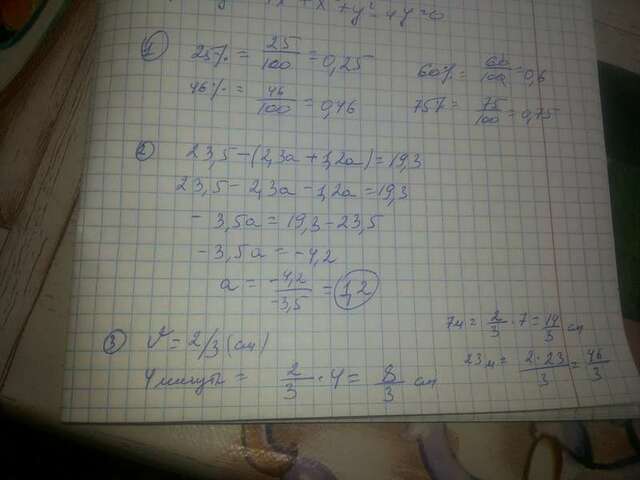 x + x² + y² - 4y = 0
1 25% = 25/100 = 0,25
60% = 60/100 = 0,6
46% = 46/100 = 0,46
75% = 75/100 = 0,75
2 23,5 - (2,3a + 1,2a) = 19,3
23,5 - 2,3a - 1,2a = 19,3
- 3,5a = 19,3 - 23,5
- 3,5a = -4,2
a = -4,2/-3,5 = 1,2
3 V = 2/3 (см)
4 минуты = 2/3 · 4 = 8/3 см
7м = 2/3 · 7 = 14/3 см
23м = 2·23/3 = 46/3